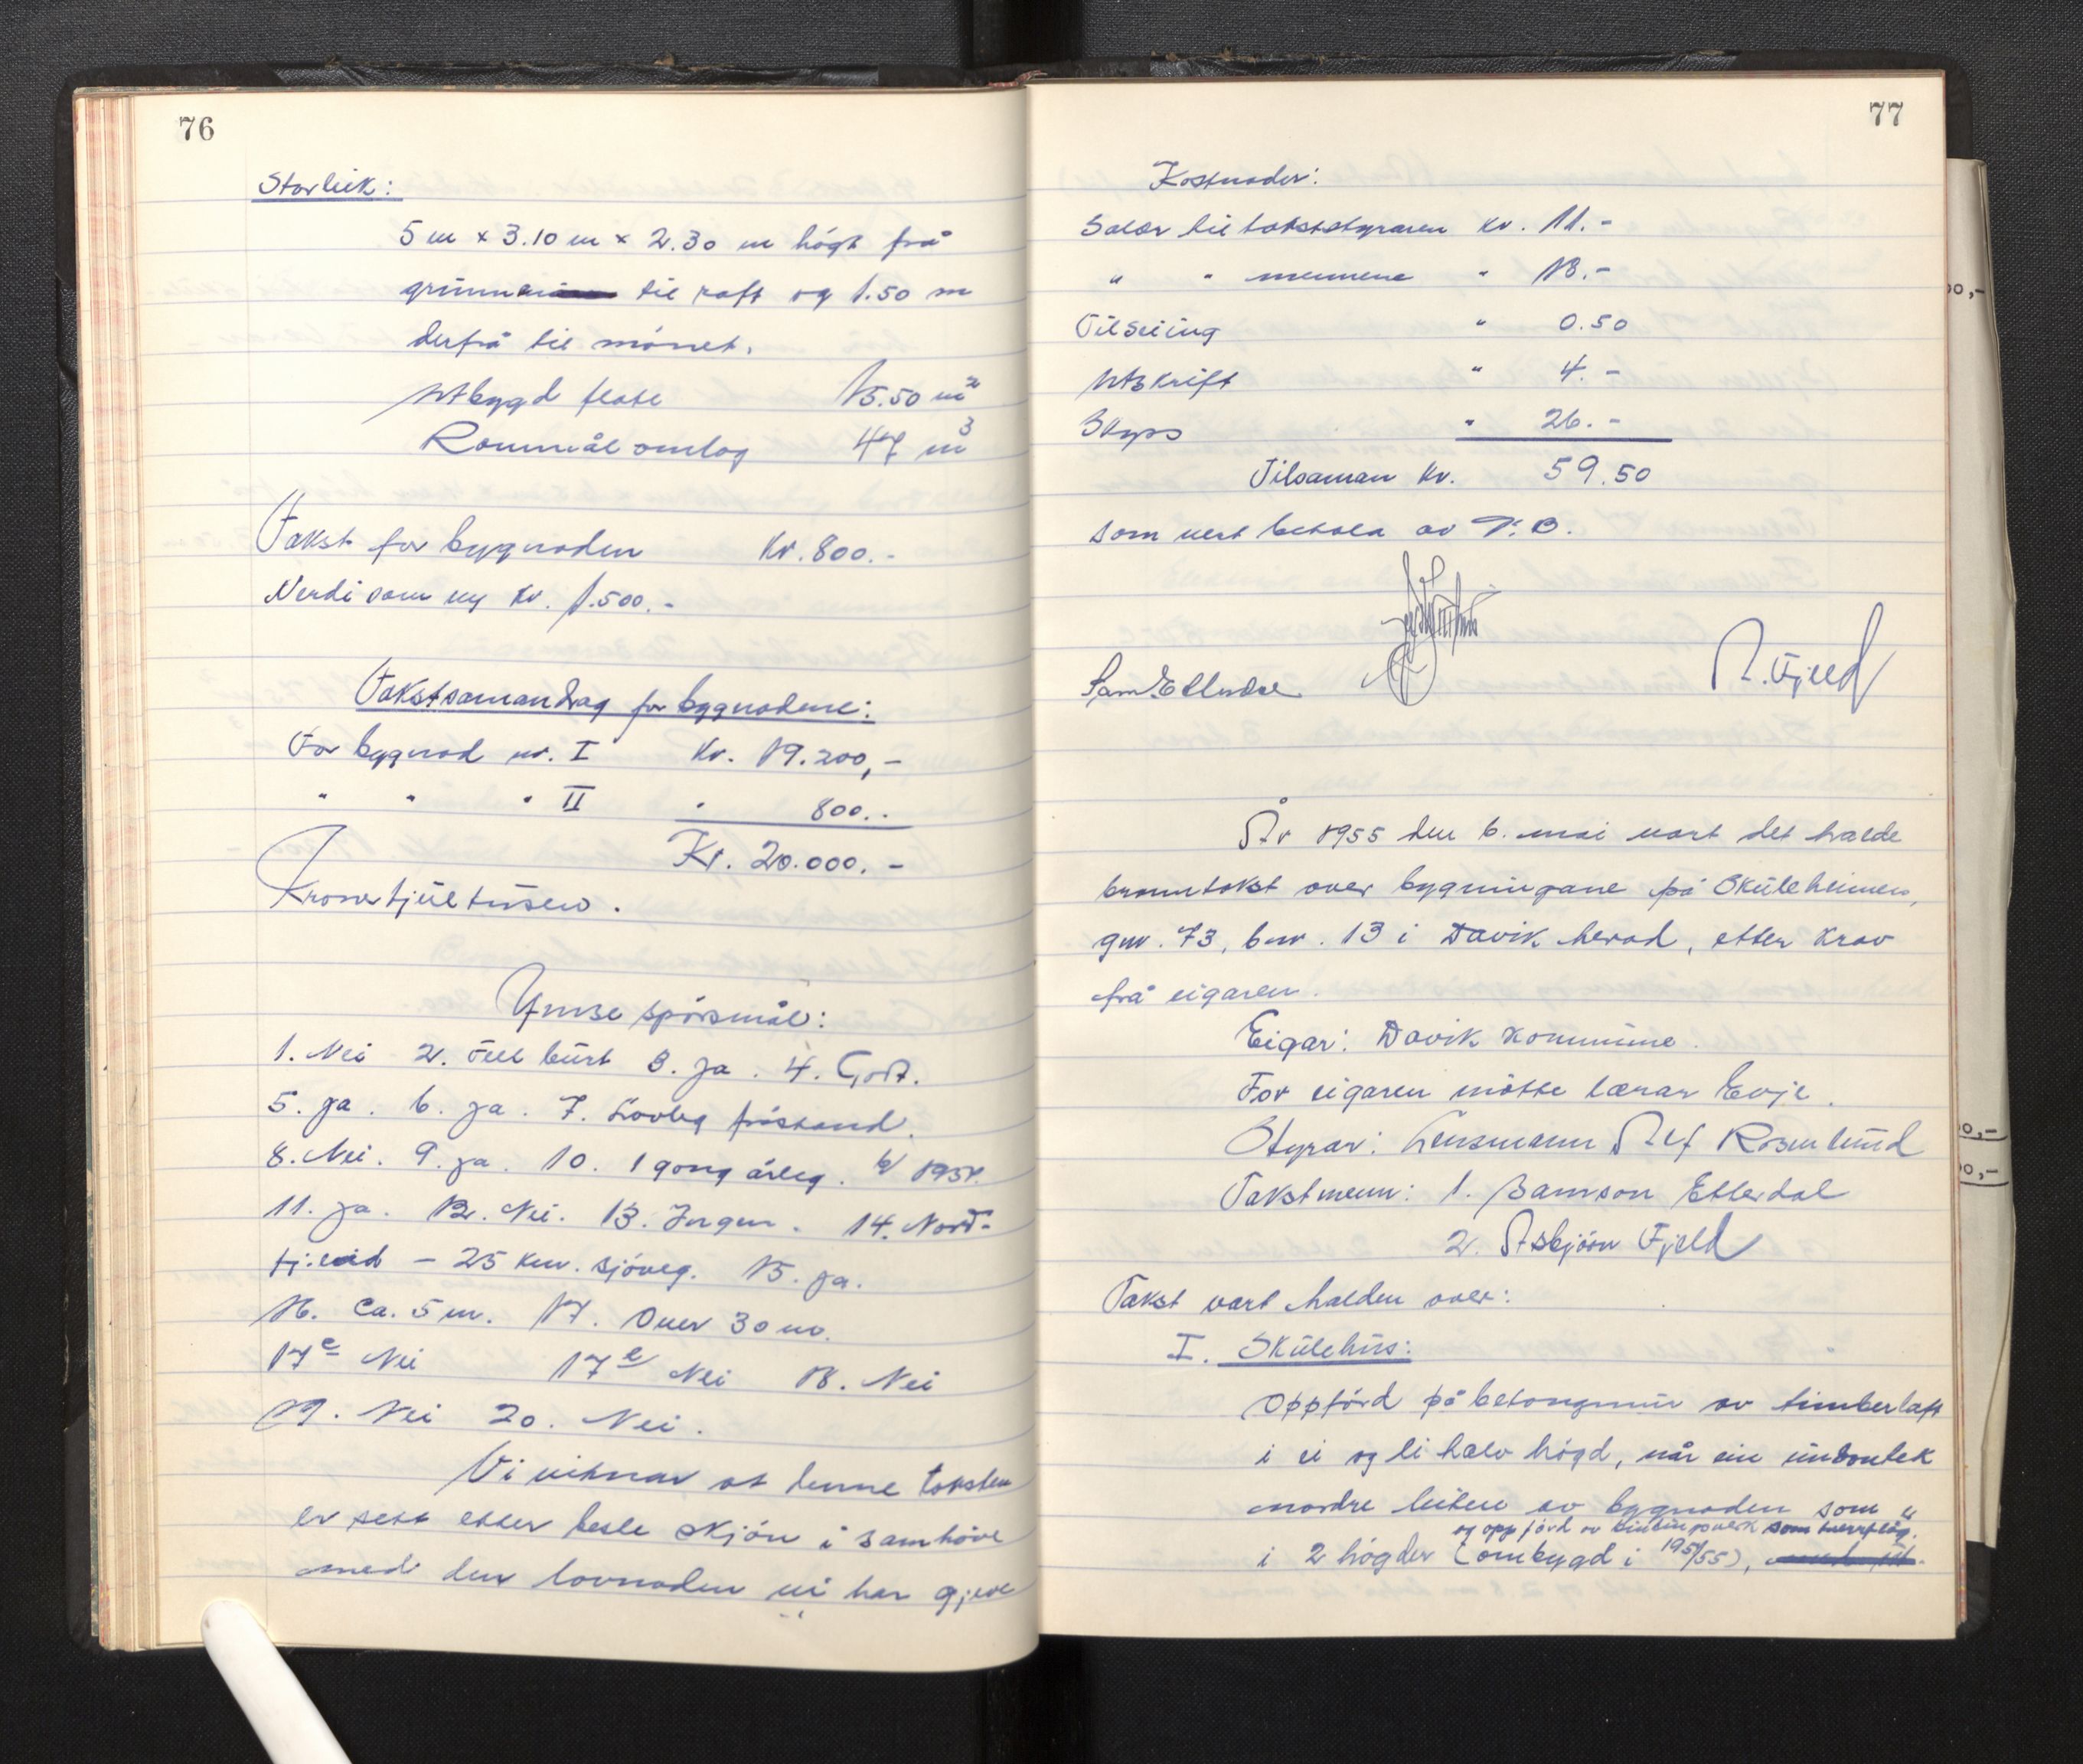 76
Storleik:
5 m x 3.10 m x 2.30 m högt frå
til raft og 1.50 m
derfrå til mönet.
Utbygd flate 15.50 m²
Rommål omlag 47 m³
Takst for bygnaden Kr. 800.-
Verdi som ny kr. 1.500.-
Takstsamandrag for bygnadene:
For bygnad nr. I Kr. 19.200,-
" " " II " 800.-
Kr. 20.000.-
Kroner tjue tusen.
Ymse spörsmål:
1. Nei 2. Til burt 3. Ja. 4. Godt.
5. Ja. 6. Ja. 7. Lovleg påstand.
8. Nei. 9. Ja. 10. 1 gong årleg. 1954.
11. Ja. 12. Nei. 13. Ingen. 14. Nord-
fj.eid - 25 km. sjöveg. 15. Ja.
16. Ca. 5 m. 17. Over 30 m.
17c Nei 17e Nei 18. Nei
19. Nei 20. Nei.
Vi vitnar at denne taksten
er sett etter beste skjön i samhöve
med den lovnaden vi har gjeve
77
Kostnader:
Salær til takststyraren kr. 11.-
" " mennene " 18.-
Tilseiing " 0.50
Utskrift " 4.-
Skyss " 26.-
Tilsaman kr. 59.50
som vert betala av
Sam. Etterdal
A. Fjeld
År 1955 den 6. mai vart det halde
branntakst over bygningane på Skuleheimen,
gnr. 73, bnr. 13 i Davik herad, etter krav
frå eigaren.
Eigar: Davik kommune.
For eigaren mötte lærar Evje.
Styrar: Lensmann Alf Rosenlund
Takstmenn: 1. Samson Etterdal
2. Asbjörn Fjeld
Takst vart halden over:
I. Skulehus:
Oppförd på betongmur av timberlaft
i ei og ei halv högd, når ein undantek
nordre luten av bygnaden som er
og oppförd av bindingsverk som tverrflöy.
i 2 högder (ombygd i 1951/55),